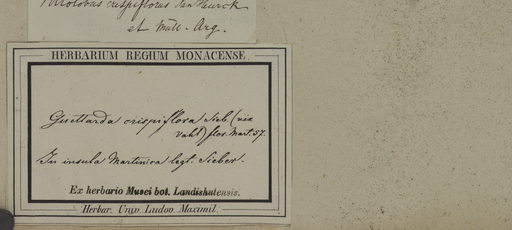 crispiflorus Van Heurck
et Müll-Arg.
HERBARIUM REGIUM MONACENSE.
Guettarda crispiflora Sieb. (vix
Vahl) flor. Mart. 57.
In insula Martinica legt. Sieber.
Ex herbario Musei bot. Landishutensis.
Herbar. Univ. Ludov. Maximil.